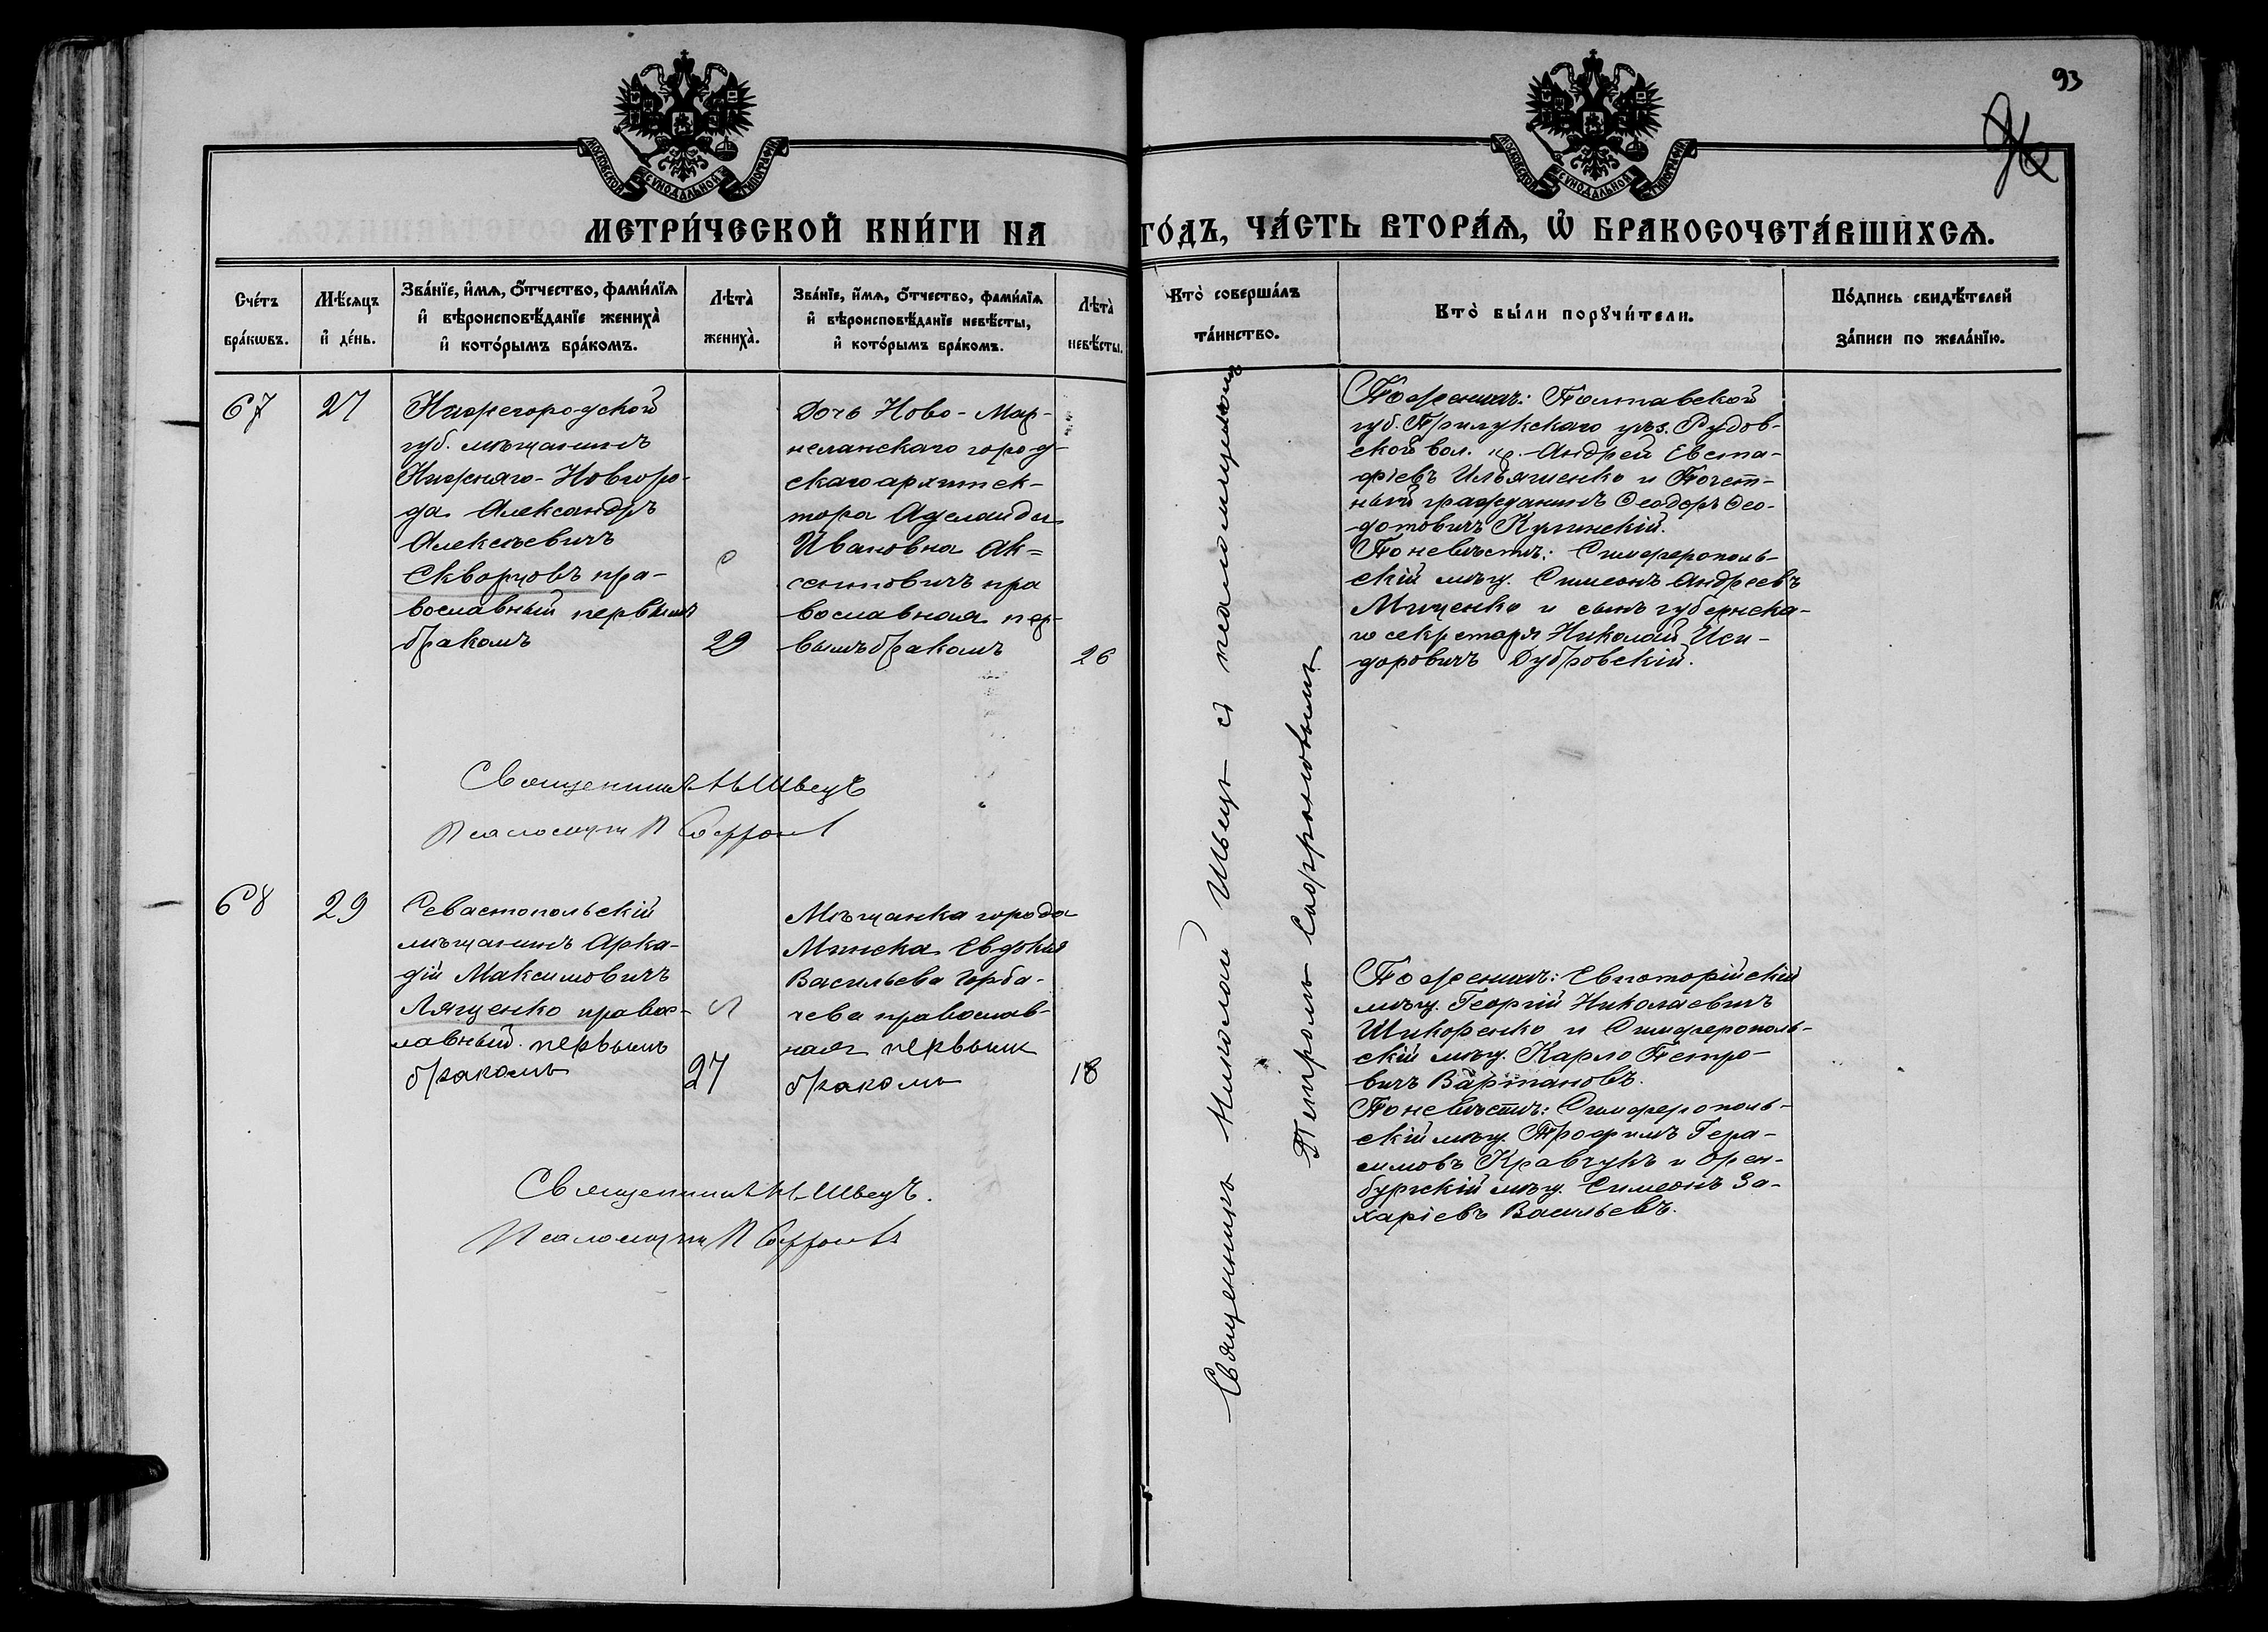 93
МОСКОВСКОЙ СУНОДАЛЬНОЙ ТИПОГРАФІИ
МОСКОВСКОЙ СУНОДАЛЬНОЙ ТИПОГРАФІИ
МЕТРИ́ЧЕСКОЙ КНИ́ГИ НА ГО́ДЪ, ЧА́СТЬ ВТОРА́Ѧ, Ѡ҆ БРАКОСОЧЕТА́ВШИХСѦ.
Сче́тъ
бра́кѡвъ.
Мѣ́сяцъ
и҆ де́нь.
Зва́нїе, и҆́мѧ, ѻ҆́тчество, фами́лїѧ
и҆ вѣроисповѣ́данїе жениха̀
и҆ кото́рымъ бра́комъ.
Лѣта̀
жениха̀.
Зва́нїе, и҆́мѧ, ѻ҆́тчество, фами́лїѧ
и҆ вѣроисповѣ́данїе невѣ́сты,
и҆ кото́рымъ бра́комъ.
Лѣта̀
невѣ́сты.
Кто̀ соверша́лъ
та́инство.
Кто̀ бы́ли порꙋчи́тели.
По́дпись свидѣ́телей
за́писи по жела́нїю.
67
27
Нижегородской
губ. мѣщанинъ
Нижняго-Новгоро-
да Александръ
Алексѣевичъ
Скворцовъ пра-
вославный первымъ
бракомъ
29
Дочь Ново-Мар-
геланскаго город-
скаго архитек-
тора Аделаида
Ивановна Ак=
сентовичъ пра
вославная пер-
вымъ бракомъ
26
Священникъ Н Швецъ
Псаломщ П Софрон
Священникъ Николай Швецъ съ псаломщикомъ
Петромъ Софроновымъ
По женихѣ: Полтавской
губ. Прилукскаго уѣз. Рудов-
ской вол. кр. Андрей Евста-
фіевъ Ильяшенко и Почет-
ный гражданинъ Ѳеодоръ Ѳео-
дотовичъ Кулинскій.
По невѣстѣ: Симферополь-
скій мѣщ. Симеонъ Андреевъ
Мищенко и сынъ губернска-
го секретаря Николай Иси-
доровичъ Дубровскій.
68
29
Севастопольскій
мѣщанинъ Арка-
дій Максимовичъ
Лященко правос-
лавный. первымъ
бракомъ
27
Мѣщанка города
Минска Евдокія
Васильева Горба-
чева православ-
ная первымъ
бракомъ
18
Священникъ Н Швецъ.
Псаломщик П Софронов
По женихѣ: Евпаторійскій
мѣщ. Георгій Николаевичъ
Шикоренко и Симферополь-
скій мѣщ. Карло Петро-
вичъ Вартановъ.
По невѣстѣ: Симферополь-
скій мѣщ. Трофимъ Гера-
симовъ Кравчукъ и Орен-
бургскій мѣщ. Симеонъ За-
харіевъ Васильевъ.